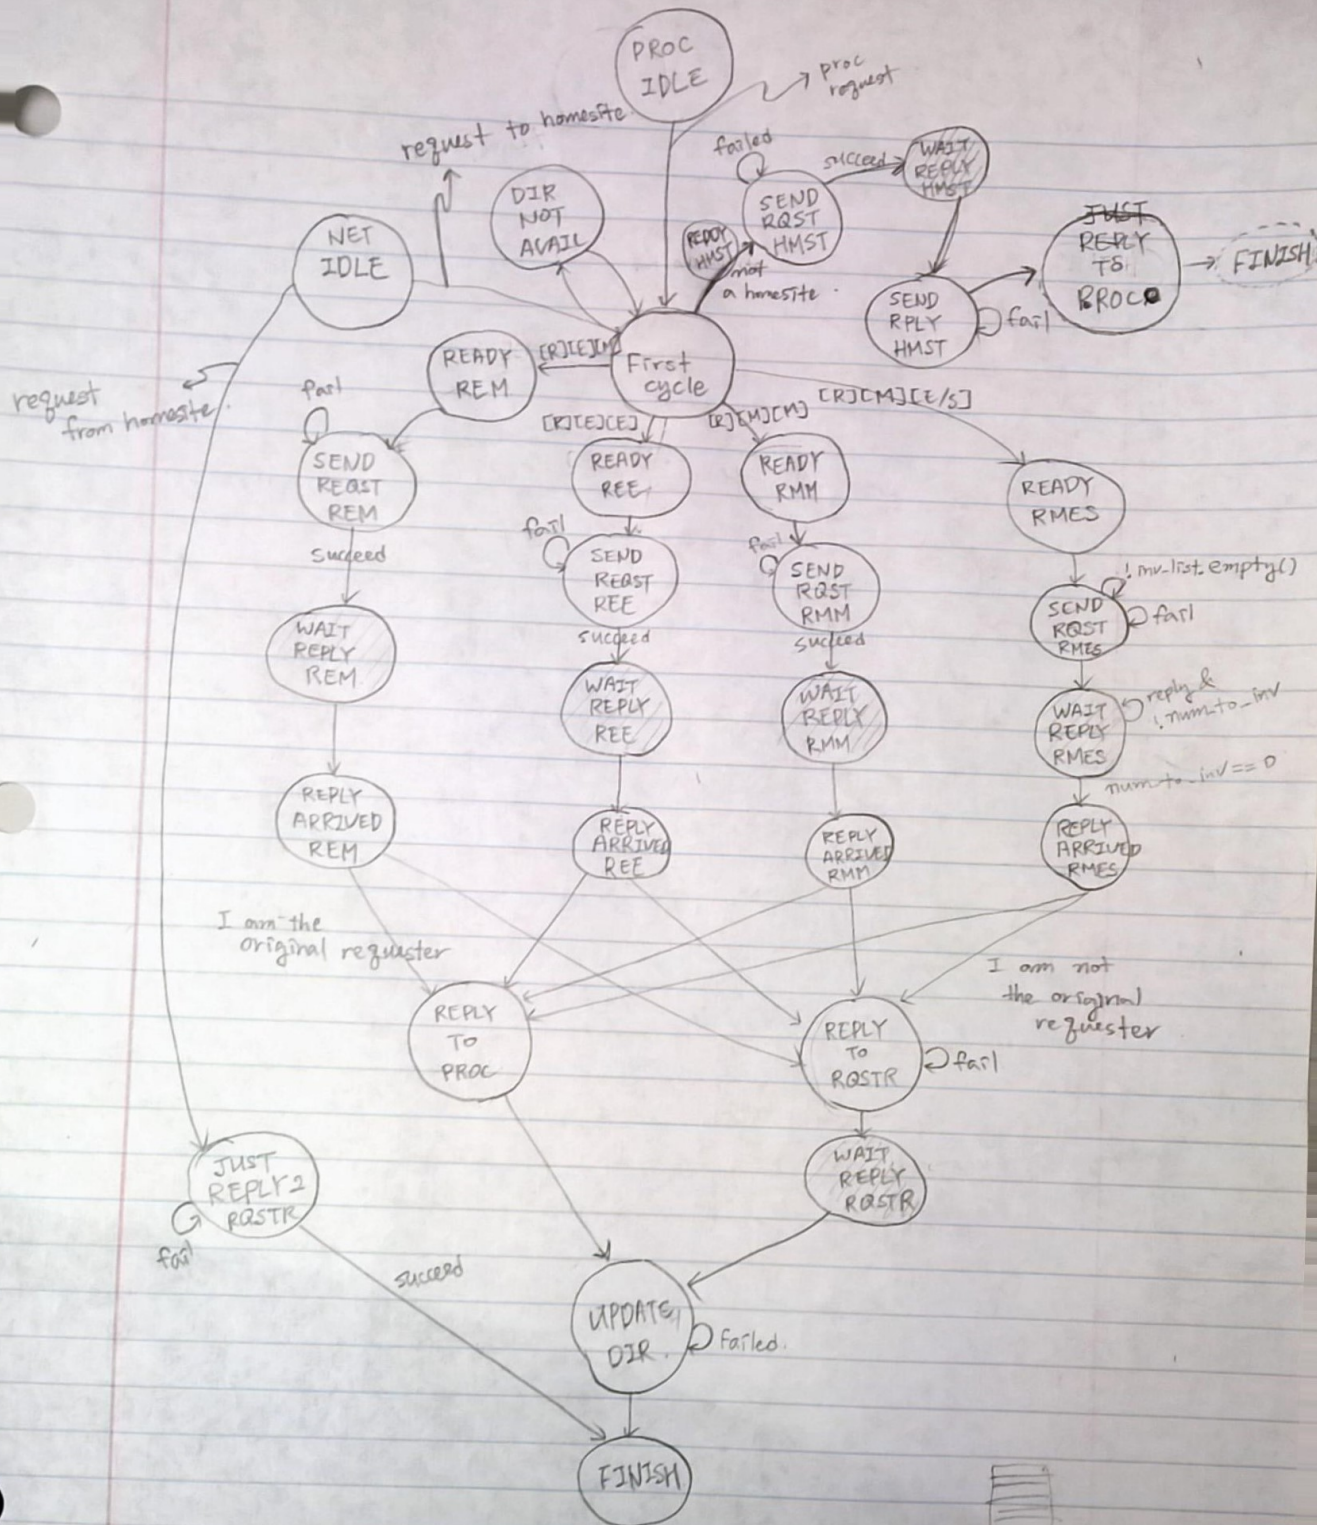 PROC
IDLE
proc
request
request to homesite
failed
succeed
WAIT
REPLY
HMST
DIR
NOT
AVAIL
SEND
RQST
HMST
READY
HMST
not
a homesite
NET
IDLE
JUST
REPLY
TO
PROC
FINISH
SEND
RPLY
HMST
fail
First
cycle
READY
REM
[R][E][M]
[R][E][E]
[R][M][M]
[R][M][E/S]
request
from homesite
fail
SEND
REQST
REM
READY
REE
READY
RMM
READY
RMES
succeed
fail
SEND
REQST
REE
fail
SEND
RQST
RMM
!inv-list.empty()
SEND
RQST
RMES
fail
succeed
succeed
WAIT
REPLY
REM
WAIT
REPLY
REE
WAIT
REPLY
RMM
WAIT
REPLY
RMES
reply &
!num_to_inv
num_to_inv == 0
REPLY
ARRIVED
REM
REPLY
ARRIVED
REE
REPLY
ARRIVED
RMM
REPLY
ARRIVED
RMES
I am the
original requester
I am not
the original
requester
REPLY
TO
PROC
REPLY
TO
RQSTR
fail
JUST
REPLY2
RQSTR
fail
WAIT
REPLY
RQSTR
succeed
UPDATE
DIR
failed.
FINISH